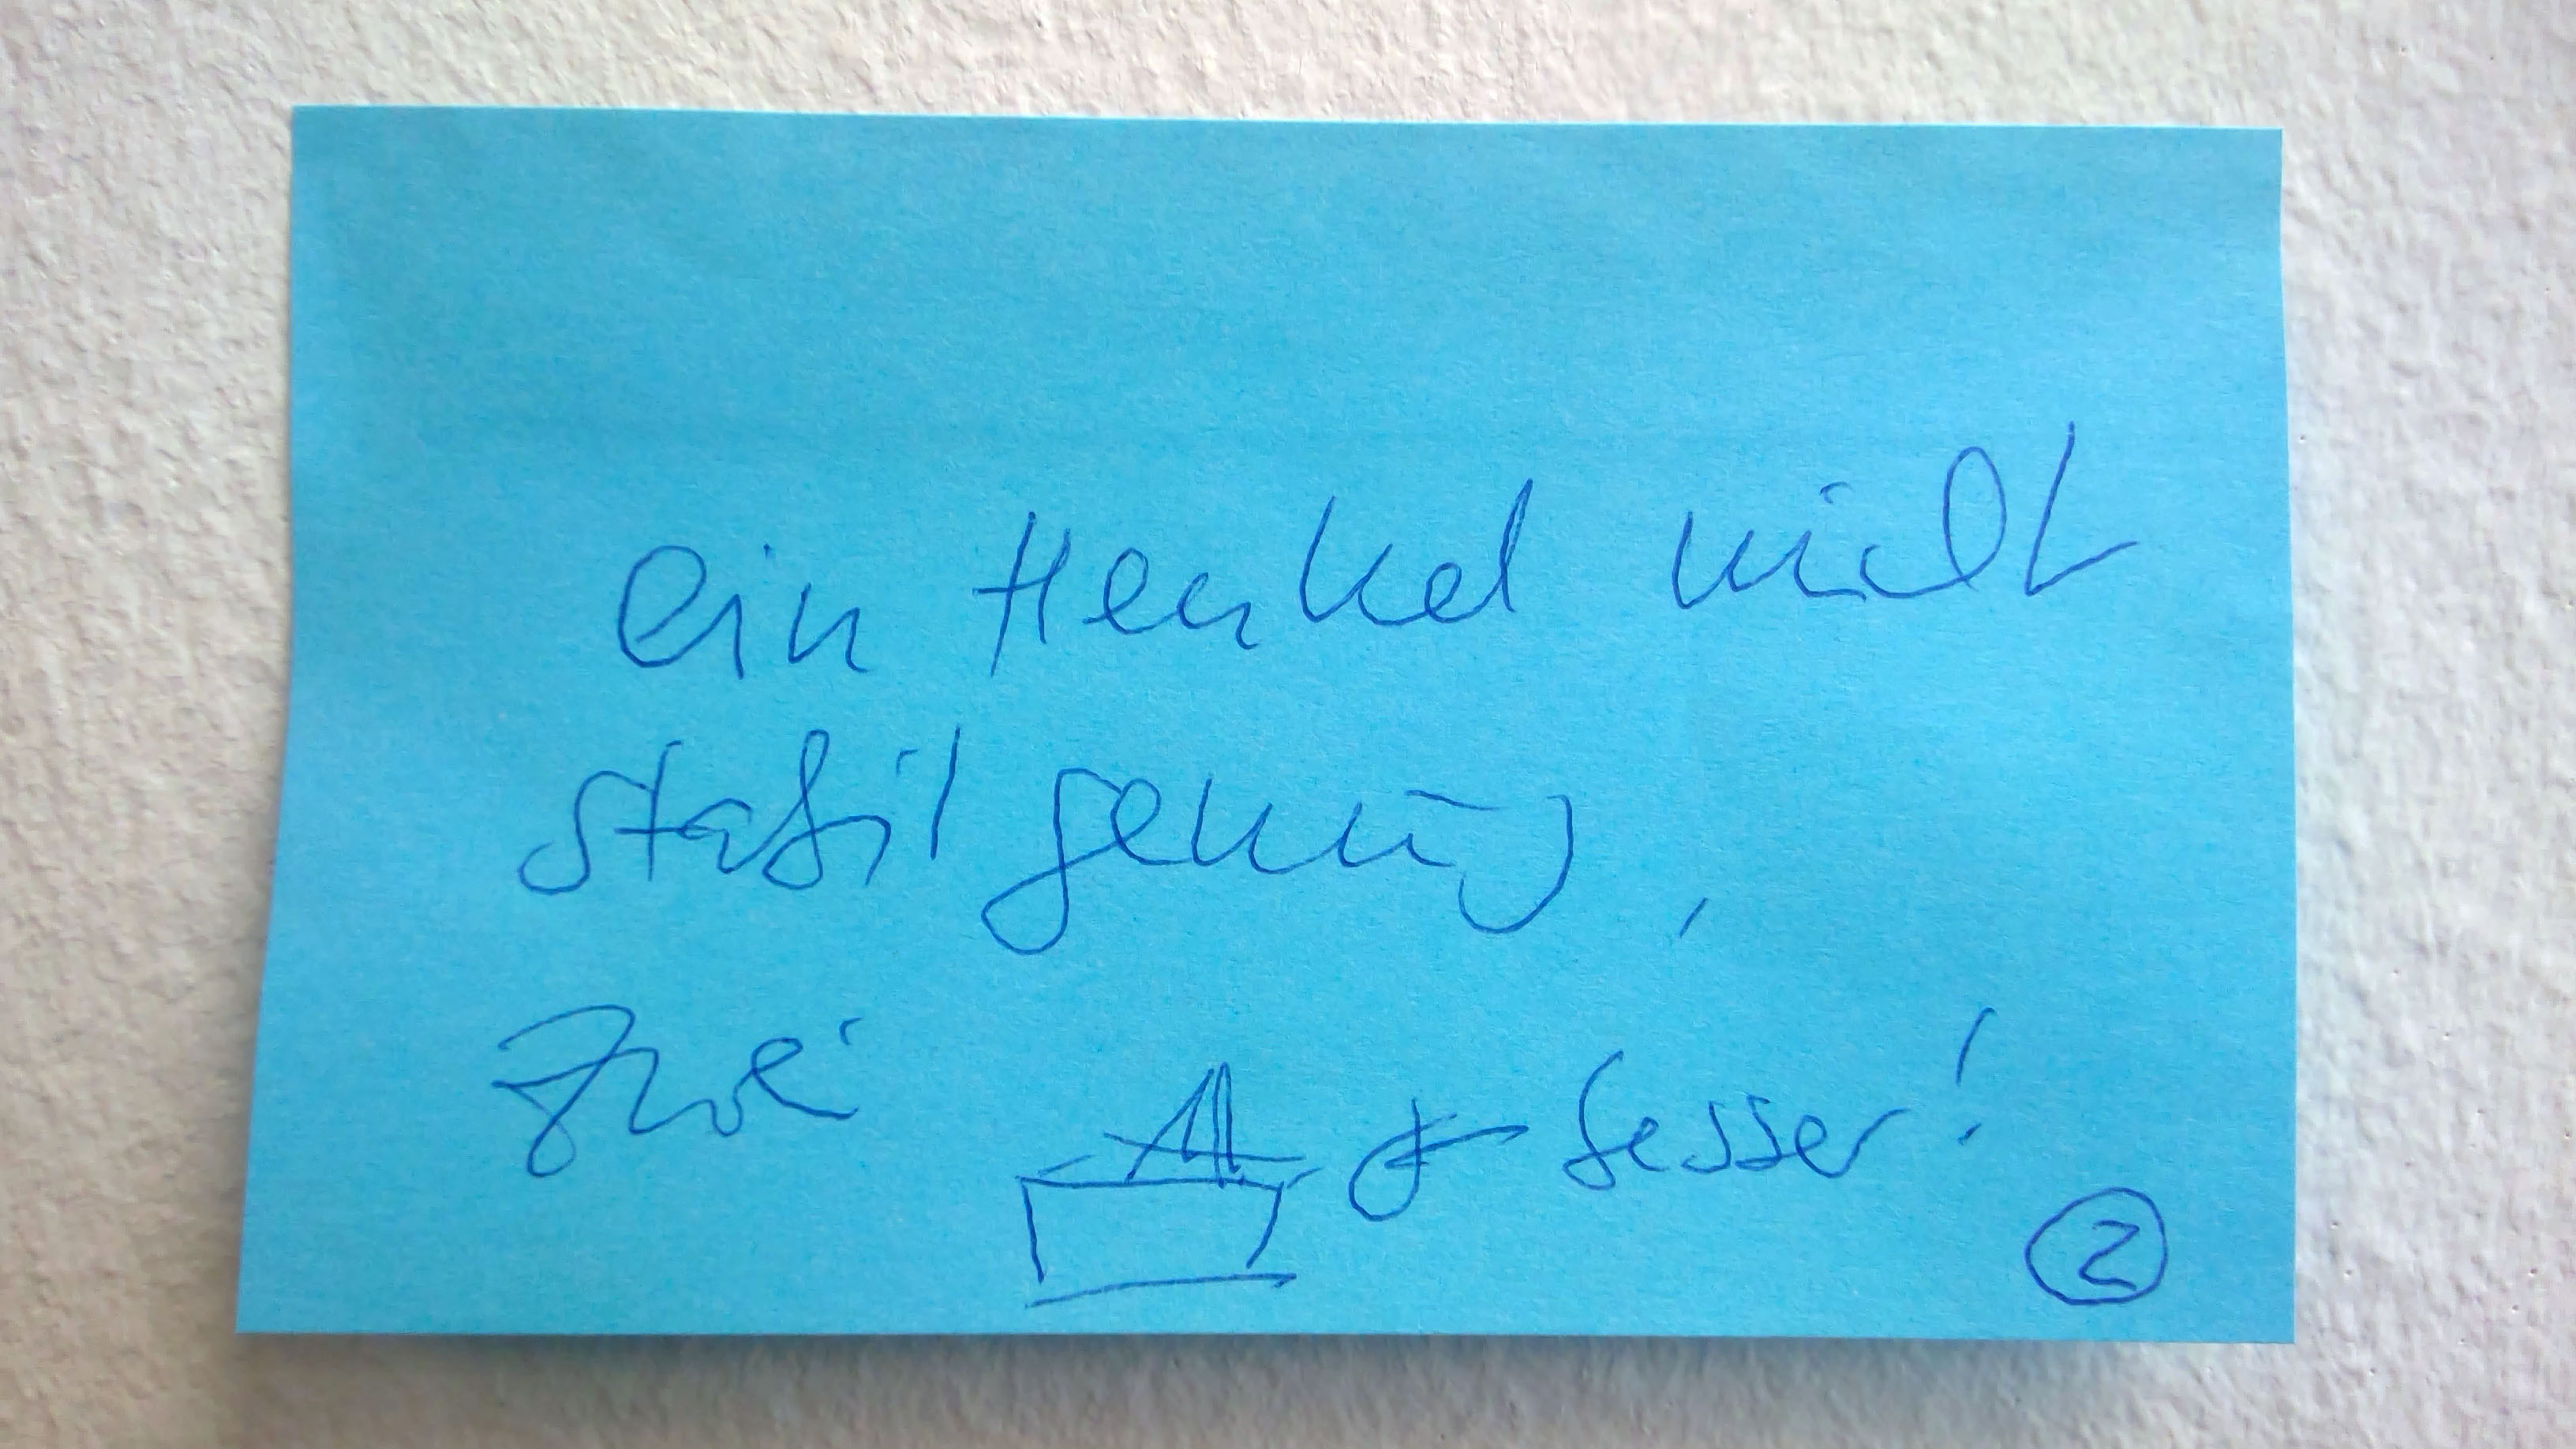 ein Henkel nicht
stabil genug,
zwei besser!
2